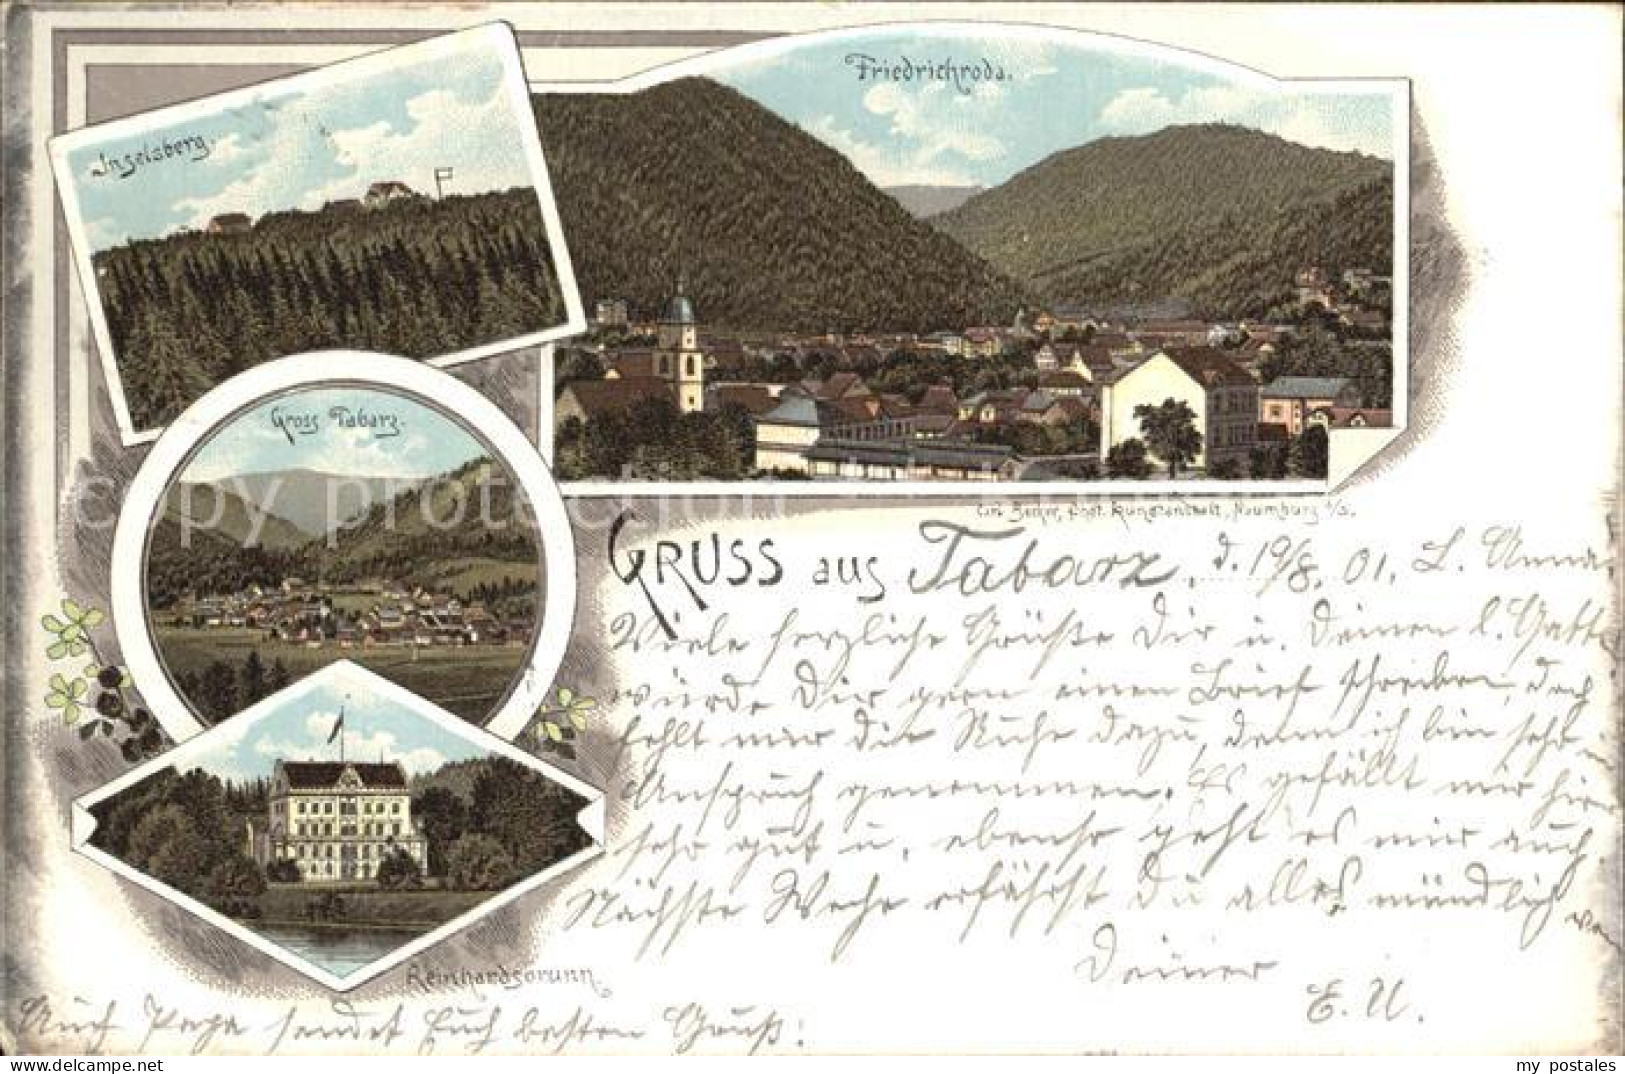 Friedrichroda.
Inselsberg.
Gross Tabarz.
Reinhardsbrunn.
Naumburg a/S.
GRUSS aus Tabarz, d. 19/8. 01. L. Anna.
Viele herzliche Grüße Dir u. Deinen l. Gatte
würde Dir gern einen Brief schreiben, doch
fehlt mir die Ruhe dazu, denn ich bin sehr in
Anspruch genommen. Es gefällt mir hier
sehr gut u. ebenso geht es mir auch.
Nächste Woche erfährst Du alles mündlich von
Deiner
E. U.
Auch Papa sendet Euch besten Gruß!
copy protection
my postales